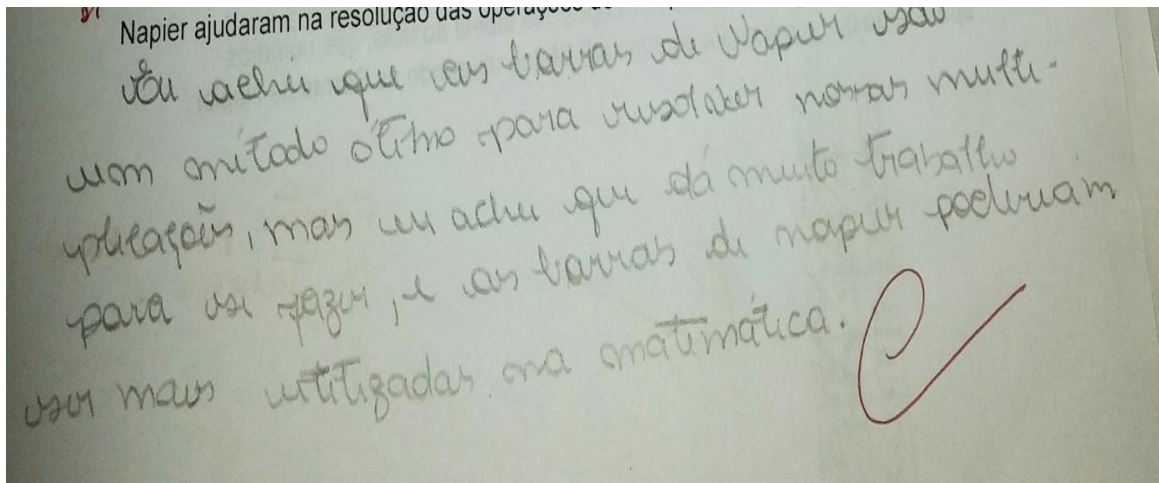 Napier ajudaram na resolução das operações
Eu achei que as barras de Napier são
um método ótimo para resolver nossas multi-
plicações, mas eu achei que dá muito trabalho
para se fazer, e as barras de napier poderiam
ser mais utilizadas na matemática.